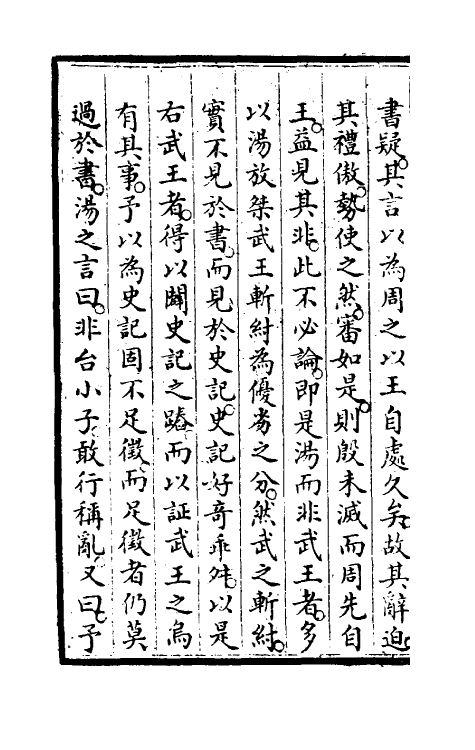 書疑。其言以為周之以王自處久矣。故其辭迫。
其禮傲。勢使之然。審如是。則殷未滅而周先自
王。益見其非。此不必論。即是湯而非武王者。多
以湯放桀武王斬紂為優劣之分。然武之斬紂。
實不見於書。而見於史記。史記好奇乖舛。以是
右武王者。得以闢史記之蹐而以証武王之烏
有其事。予以為史記固不足徵。而足徵者仍莫
過於書。湯之言曰。非台小子。敢行稱亂。又曰。予